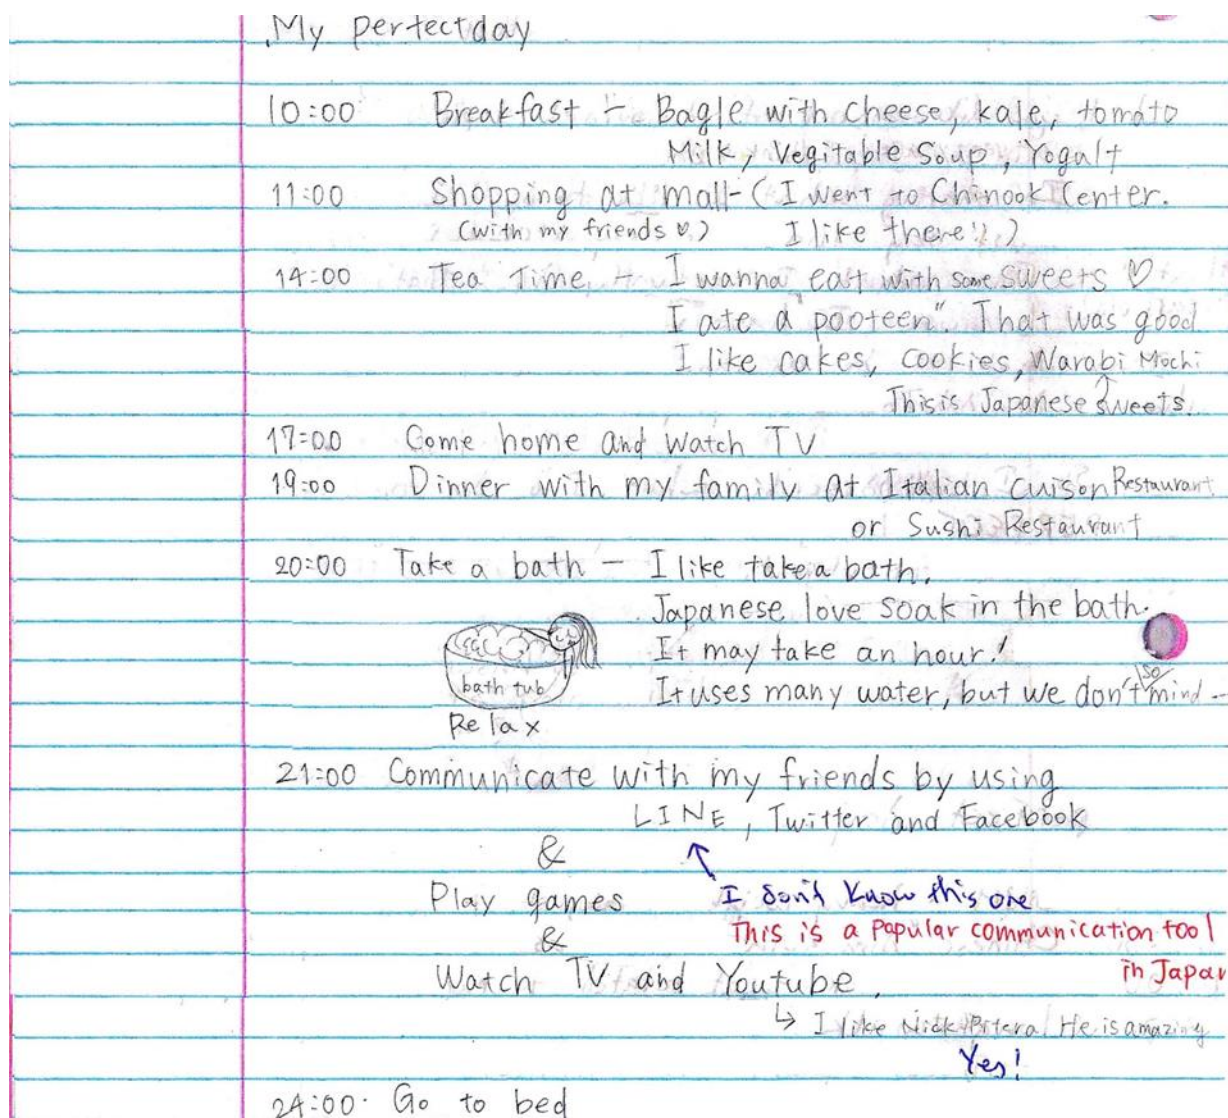 My perfectday
10:00 Breakfast - Bagle with cheese, kale, tomato
Milk, Vegitable Soup, Yogult
11:00 Shopping at mall - (I went to Chinook Center.
(with my friends ♡) I like there!!)
14:00 Tea Time - I wanna eat with some sweets ♡
I ate a "pooteen". That was good
I like cakes, cookies, Warabi Mochi
This is Japanese sweets.
17:00 Come home and Watch TV
19:00 Dinner with my family at Italian cuison Restaurant
or Sushi Restaurant
20:00 Take a bath - I like take a bath.
Japanese love soak in the bath.
It may take an hour!
bath tub
It uses many water, but we don't so mind -
Relax
21:00 Communicate with my friends by using
LINE, Twitter and Facebook
&
Play games
I don't know this one
&
This is a Popular communication tool
in Japan
Watch TV and Youtube.
↳ I like Nick Pitera. He is amazing
Yes!
24:00 Go to bed